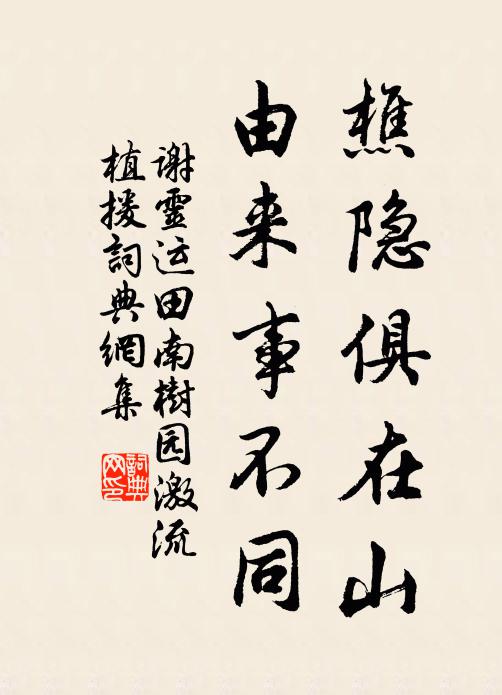 樵隐俱在山
由来事不同
谢靈运田南樹园激流
植援詞典網集
詞典网印